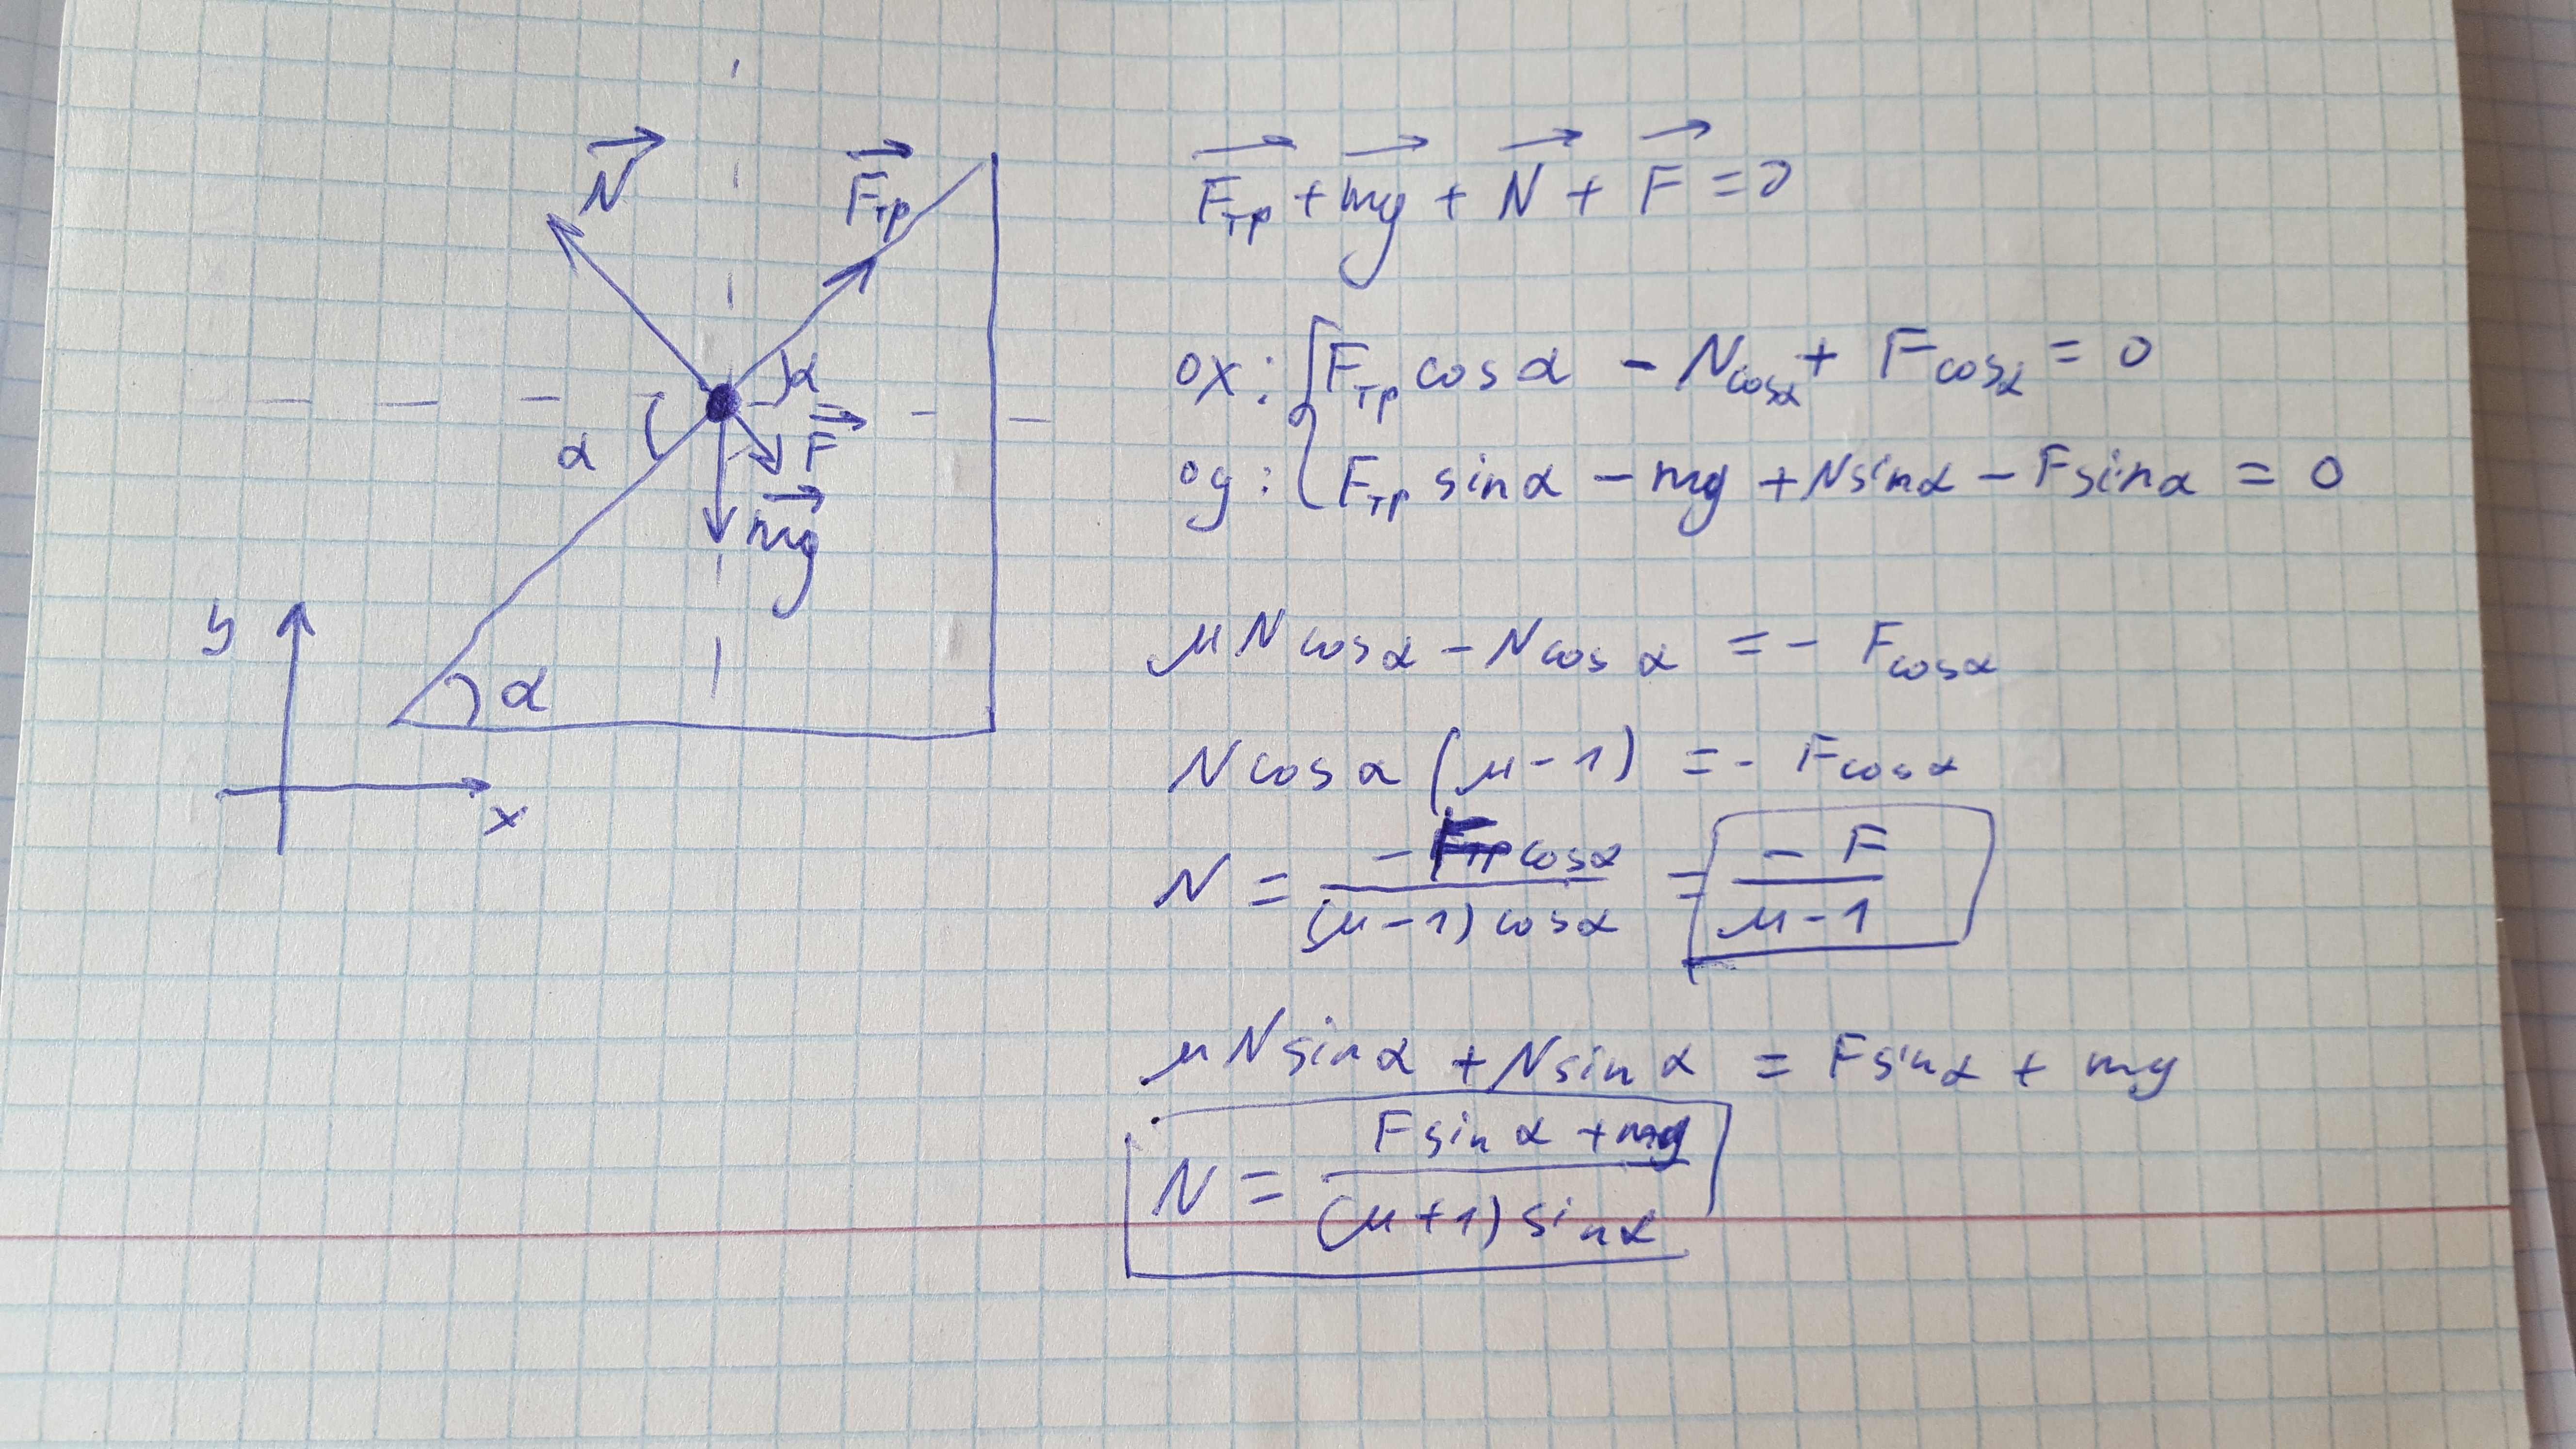 N⃗
F⃗тр
α
α
F⃗
mg⃗
y
α
x
F⃗тр + mg⃗ + N⃗ + F⃗ = 0
ox: { Fтр cos α - N cos α + F cos α = 0
oy: { Fтр sin α - mg + N sin α - F sin α = 0
μ N cos α - N cos α = - F cos α
N cos α (μ - 1) = - F cos α
N = - F cos α / (μ - 1) cos α = - F / μ - 1
μ N sin α + N sin α = F sin α + mg
N = F sin α + mg / (μ + 1) sin α